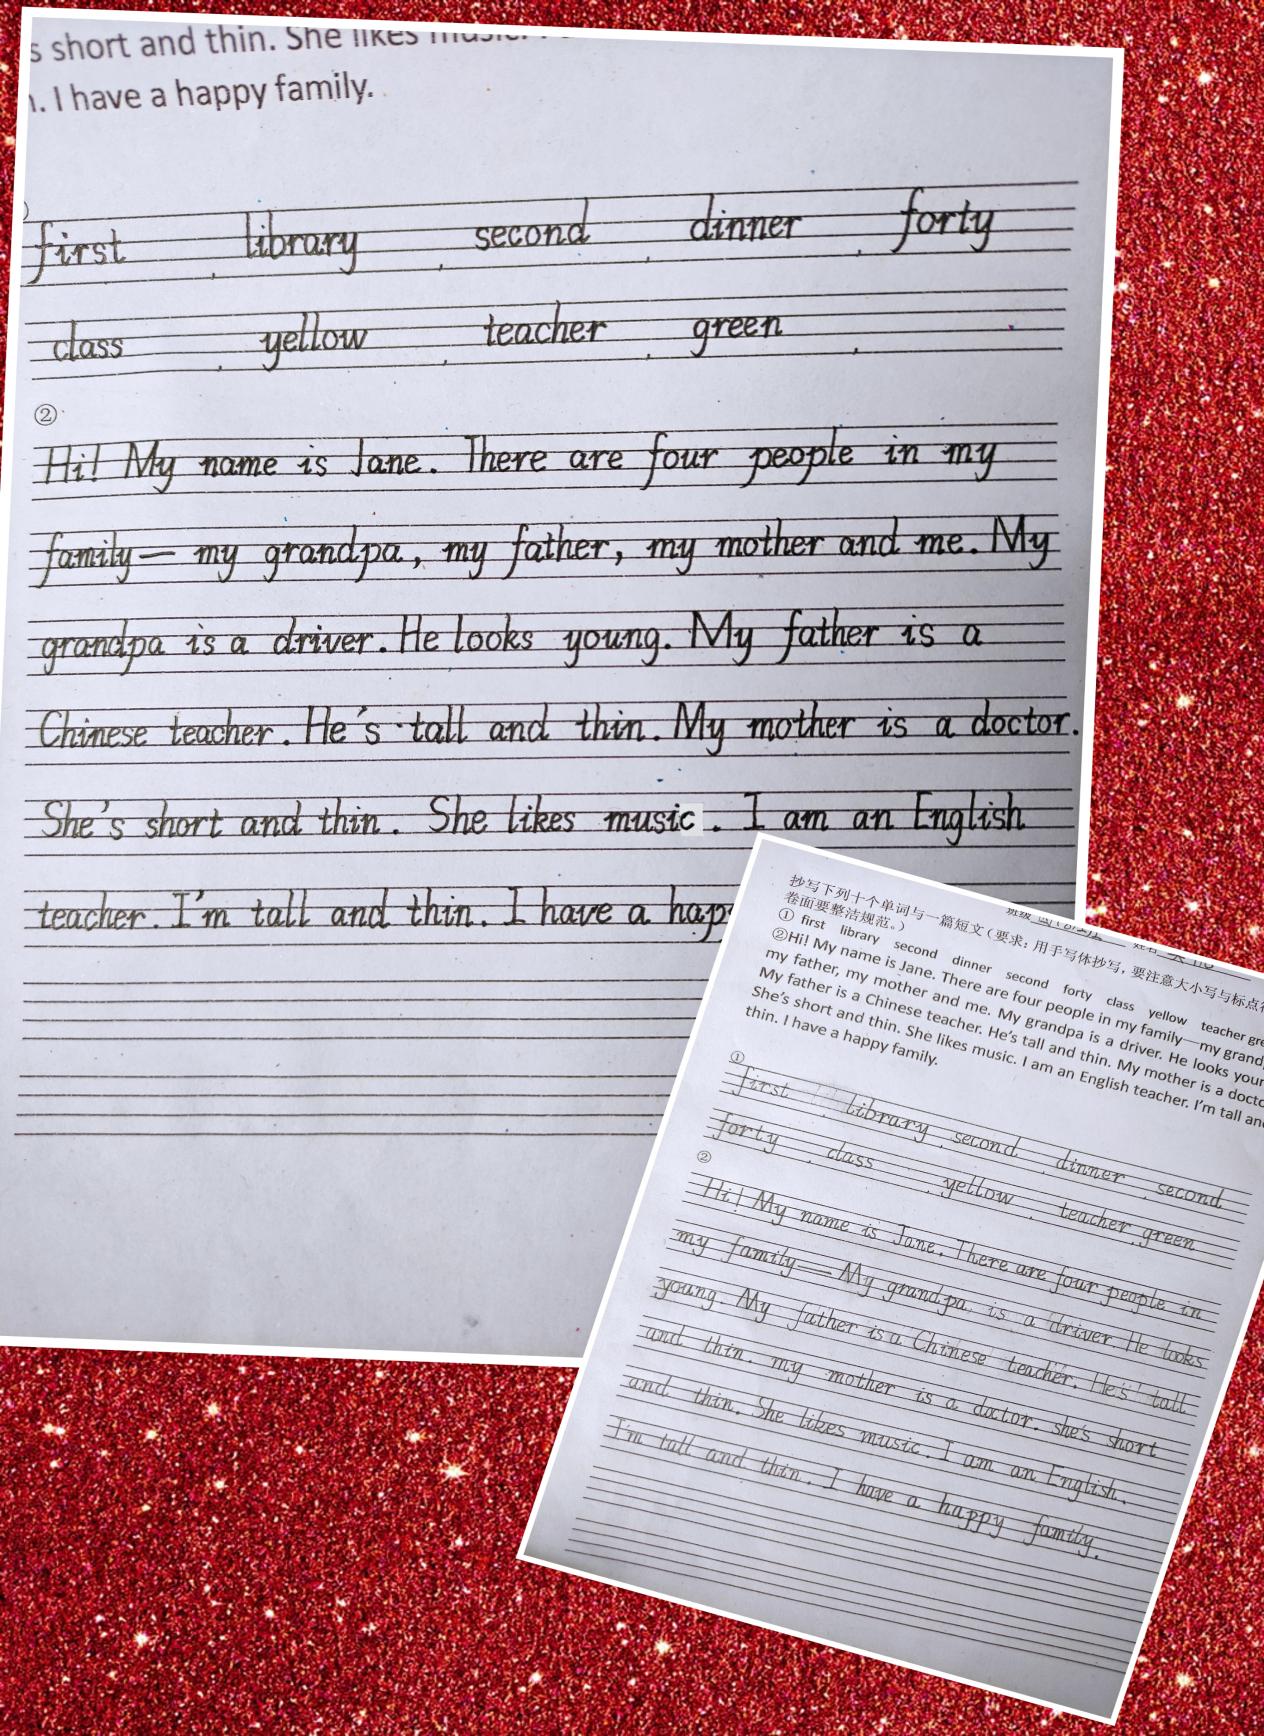 s short and thin. She likes music.
. I have a happy family.
first library second dinner forty
class yellow teacher green
②
Hi! My name is Jane. There are four people in my
family— my grandpa, my father, my mother and me. My
grandpa is a driver. He looks young. My father is a
Chinese teacher. He's tall and thin. My mother is a doctor.
She's short and thin. She likes music. I am an English
teacher. I'm tall and thin. I have a hap
班级
抄写下列十个单词与一篇短文(要求:用手写体抄写,要注意大小写与标点
卷面要整洁规范。)
① first library second dinner second forty class yellow teacher gre
②Hi! My name is Jane. There are four people in my family—my grand
my father, my mother and me. My grandpa is a driver. He looks your
My father is a Chinese teacher. He's tall and thin. My mother is a docto
She's short and thin. She likes music. I am an English teacher. I'm tall and
thin. I have a happy family.
①
first library second dinner second
forty class yellow teacher green
②
Hi! My name is Jane. There are four people in
my family—My grandpa is a driver. He looks
young. My father is a Chinese teacher. He's tall
and thin. my mother is a doctor. she's short
and thin. She likes music. I am an English.
I'm tall and thin. I have a happy family.